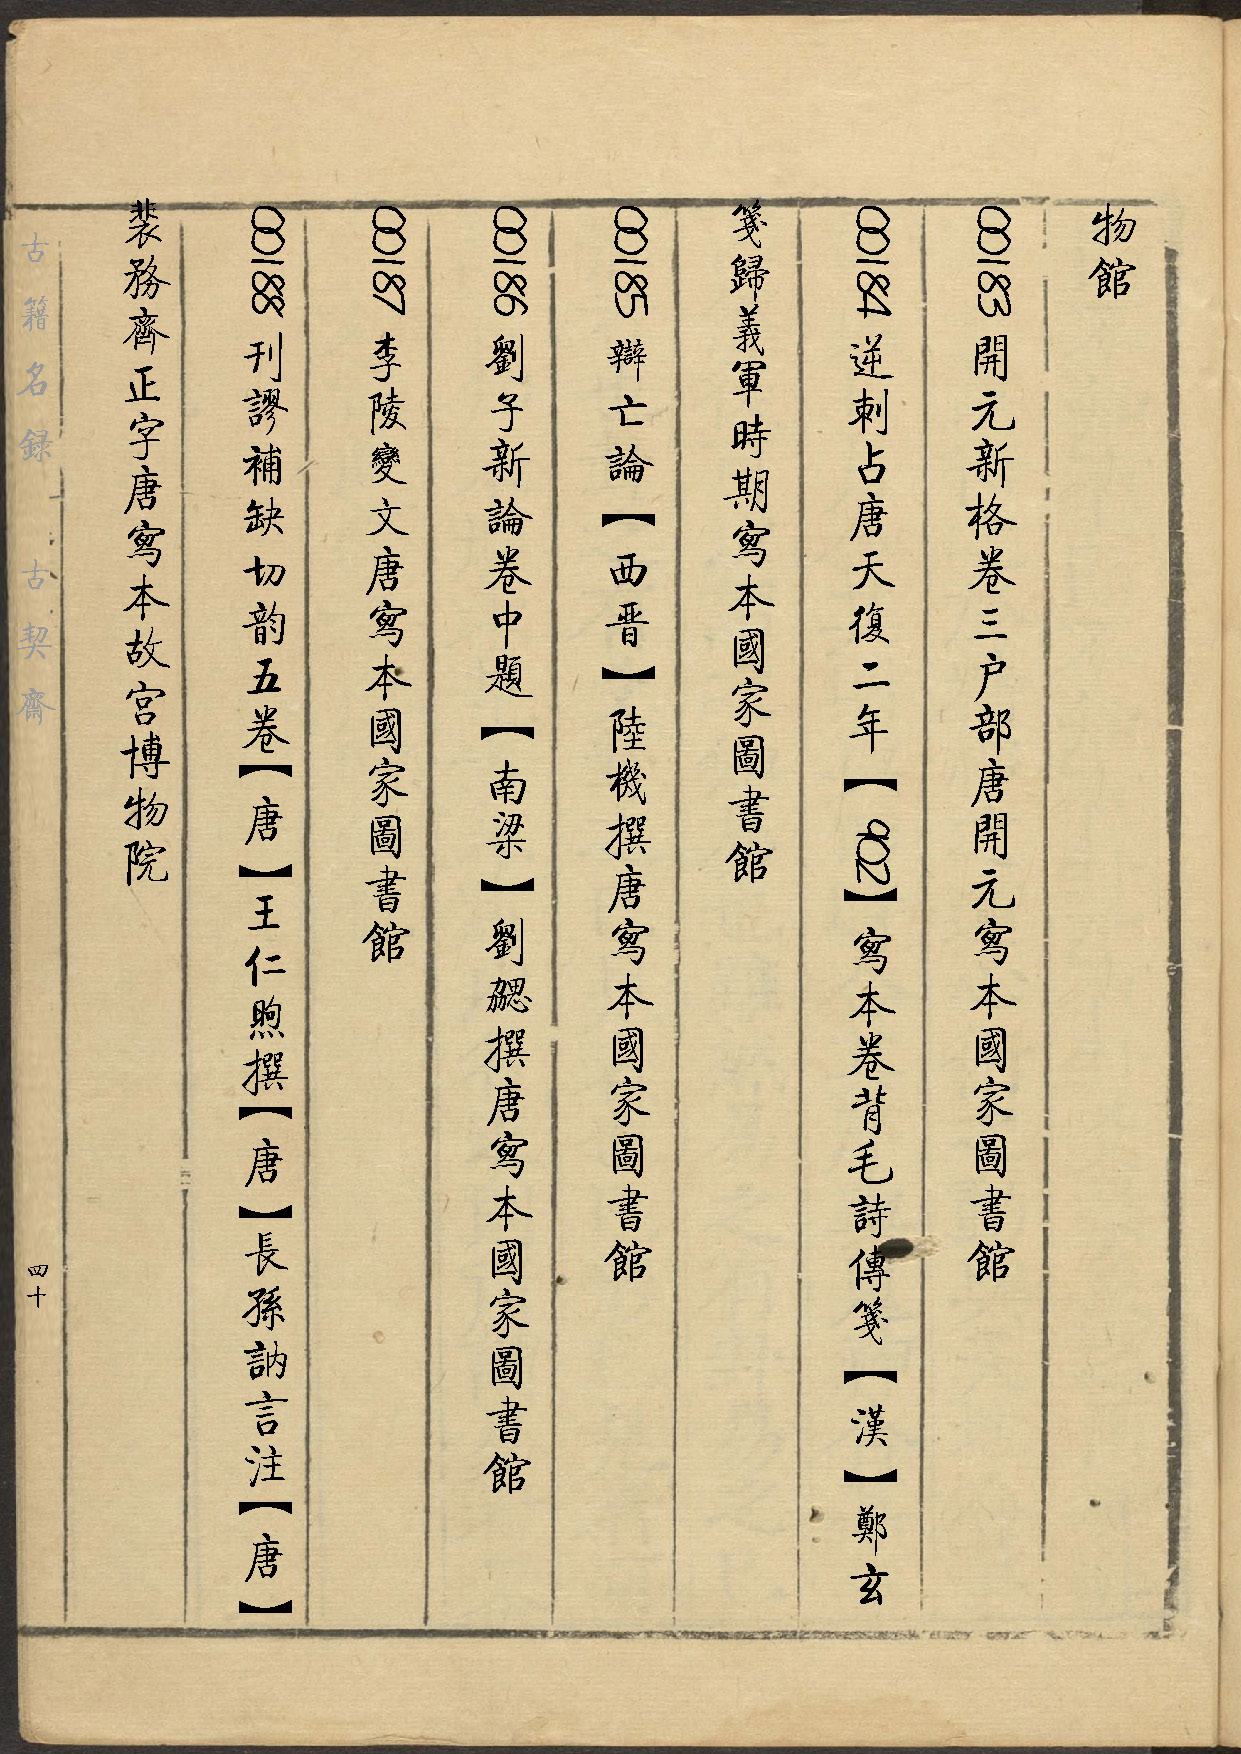 物館
00183 開元新格卷三户部唐開元寫本國家圖書館
00184 逆刺占唐天復二年【902】寫本卷背毛詩傳箋【漢】鄭玄
箋歸義軍時期寫本國家圖書館
00185 辯亡論【西晋】陸機撰唐寫本國家圖書館
00186 劉子新論卷中題【南梁】劉勰撰唐寫本國家圖書館
00187 李陵變文唐寫本國家圖書館
00188 刊謬補缺切韵五卷【唐】王仁煦撰【唐】長孫訥言注【唐】
裴務齊正字唐寫本故宫博物院
古籍名録·古契齋
四十